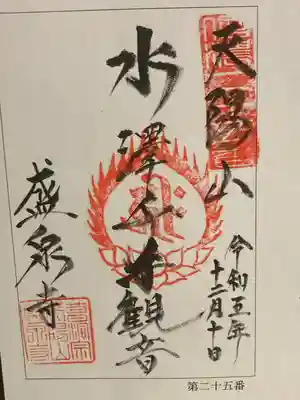 天陽山
令和五年
十二月十日
水澤千手觀音
盛泉寺
第二十五番